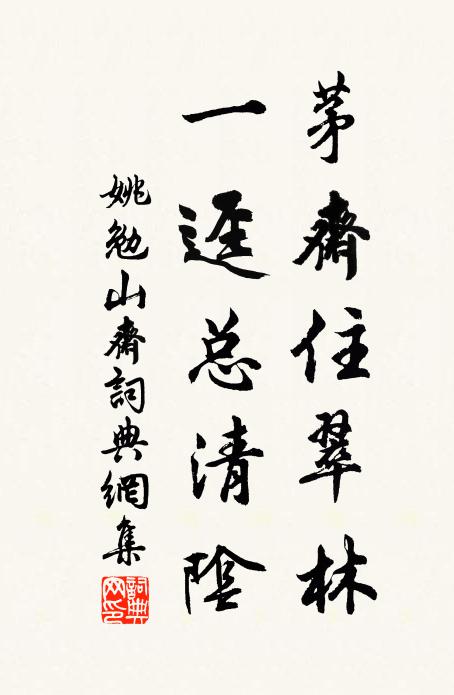 茅齋住翠林
一逕总清陰
姚勉山齋詞典網集
詞典网印